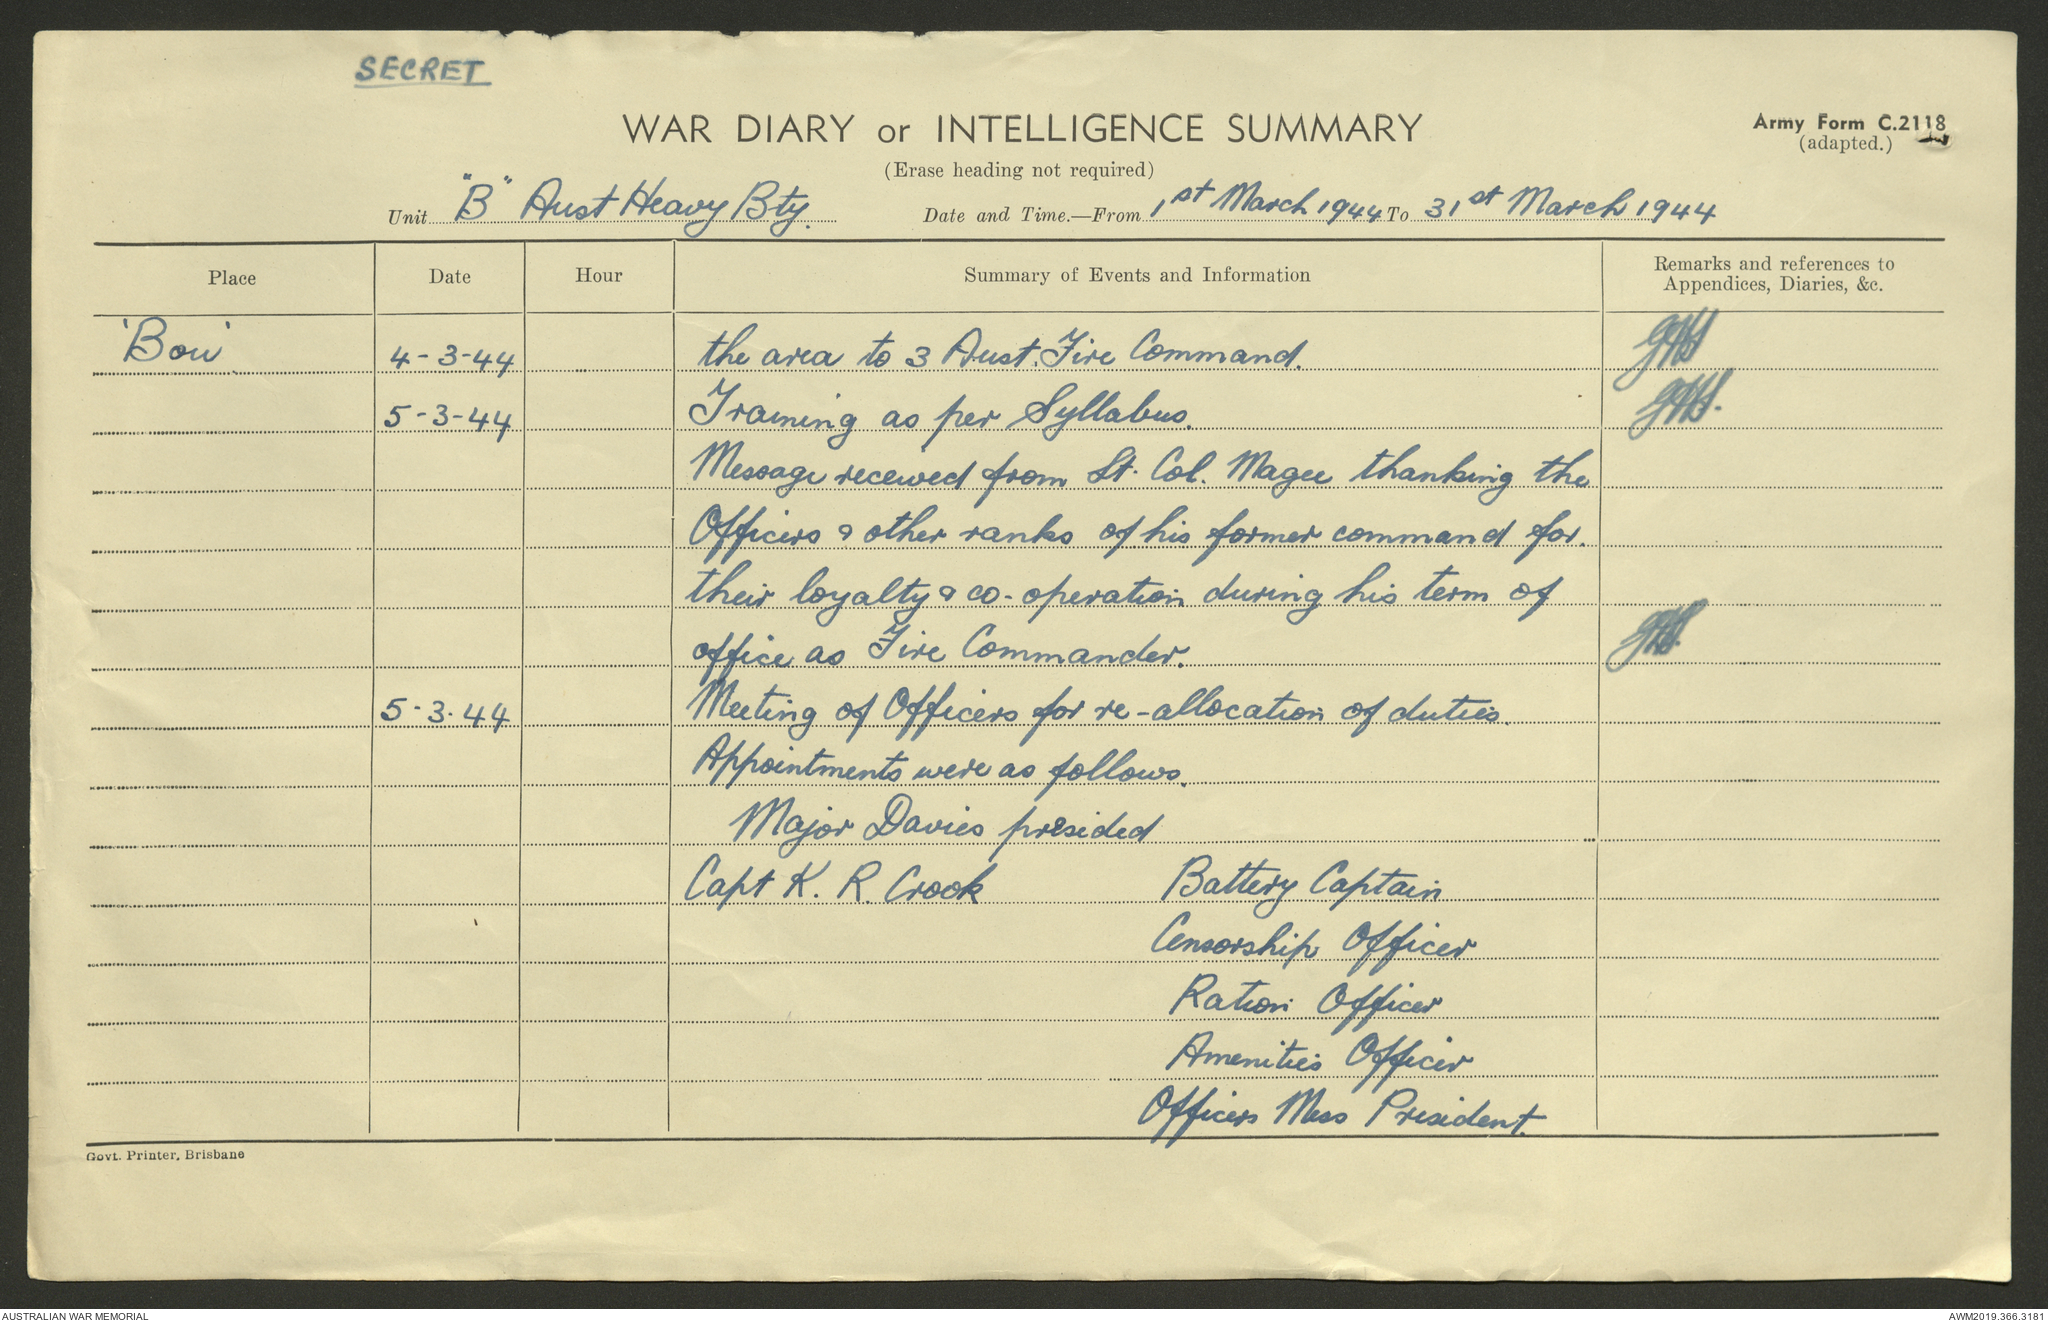 SECRET
WAR DIARY or INTELLIGENCE SUMMARY
Army Form C.2118
(adapted.)
(Erase heading not required)
Unit "B" Aust Heavy Bty. Date and Time.—From 1st March 1944 To 31st March 1944
Place Date Hour Summary of Events and Information Remarks and references to
Appendices, Diaries, &c.
'Bou' 4-3-44 the area to 3 Aust. Fire Command.
5-3-44 Training as per Syllabus.
Message received from Lt. Col. Magee thanking the
Officers & other ranks of his former command for.
their loyalty & co-operation during his term of
office as Fire Commander.
5-3-44 Meeting of Officers for re-allocation of duties.
Appointments were as follows.
Major Davies presided
Capt K. R. Crook Battery Captain
Censorship Officer
Ration Officer
Amenities Officer
Officers Mess President.
Govt. Printer, Brisbane
AUSTRALIAN WAR MEMORIAL AWM2019.366.3181